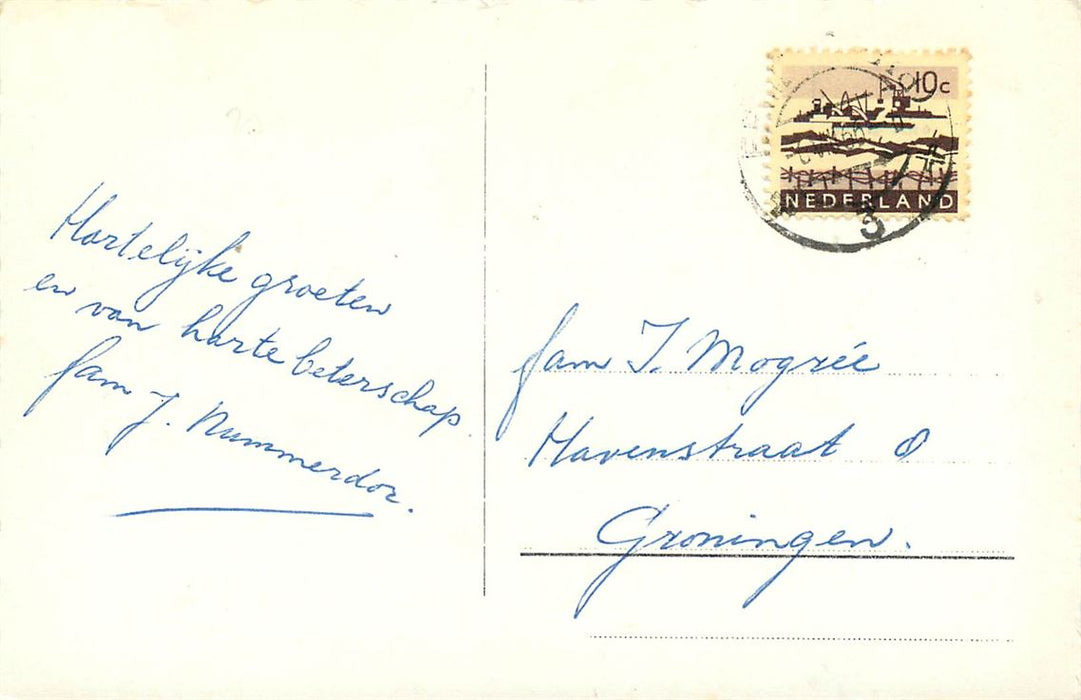 Hartelijke groeten
en van harte beterschap.
fam J. Nummerdor.
10c
NEDERLAND
3
fam J. Mogrée
Havenstraat 8
Groningen.